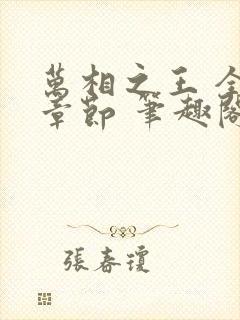 萬相之王 全
章節 筆趣閣
張春瓊